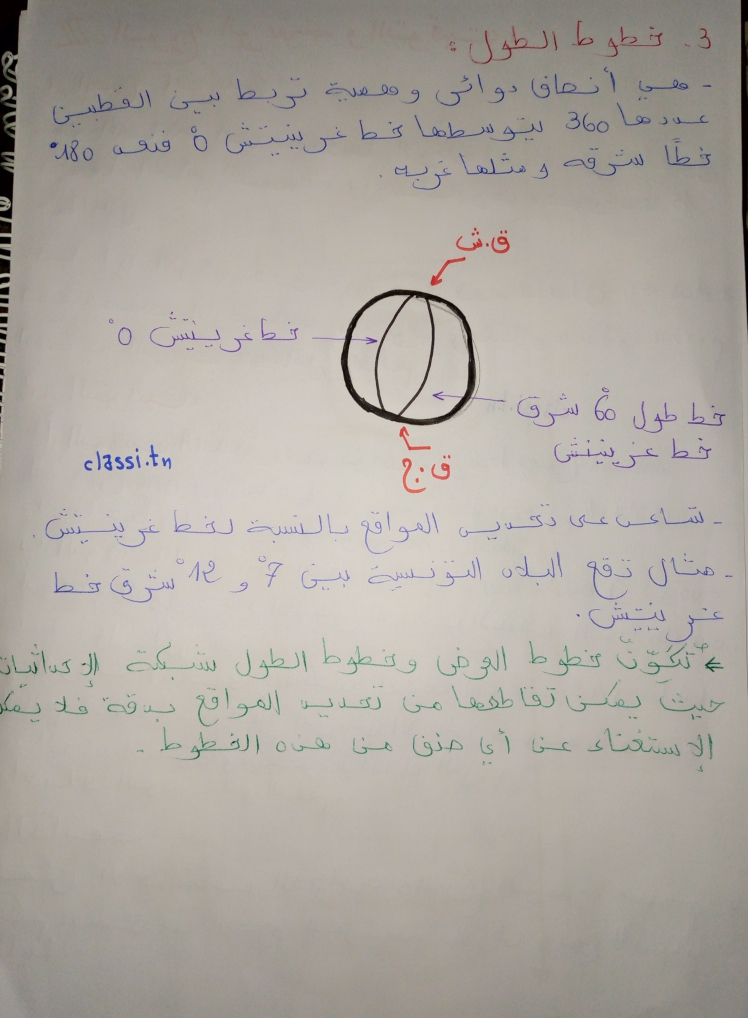 3. خطوط الطول :
- هي أنصاف دوائر وهمية تربط بين القطبين
عددها 360 يتوسطها خط غرينيتش 0° فنجد 180°
خطًا شرقه ومثلها غربه .
ق.ش
خط غرينيتش 0°
خط طول 60° شرق
خط غرينيتش
classi.tn
ق.ج
- تساعد على تحديد المواقع بالنسبة لخط غرينيتش .
- مثال تقع البلاد التونسية بين 7° و 12° شرق خط
غرينيتش .
← تكوّن خطوط العرض وخطوط الطول شبكة الإحداثيات
حيث يمكن تقاطعها من تحديد المواقع بدقة فلا يمكن
الإستغناء عن أي صنف من هذه الخطوط .